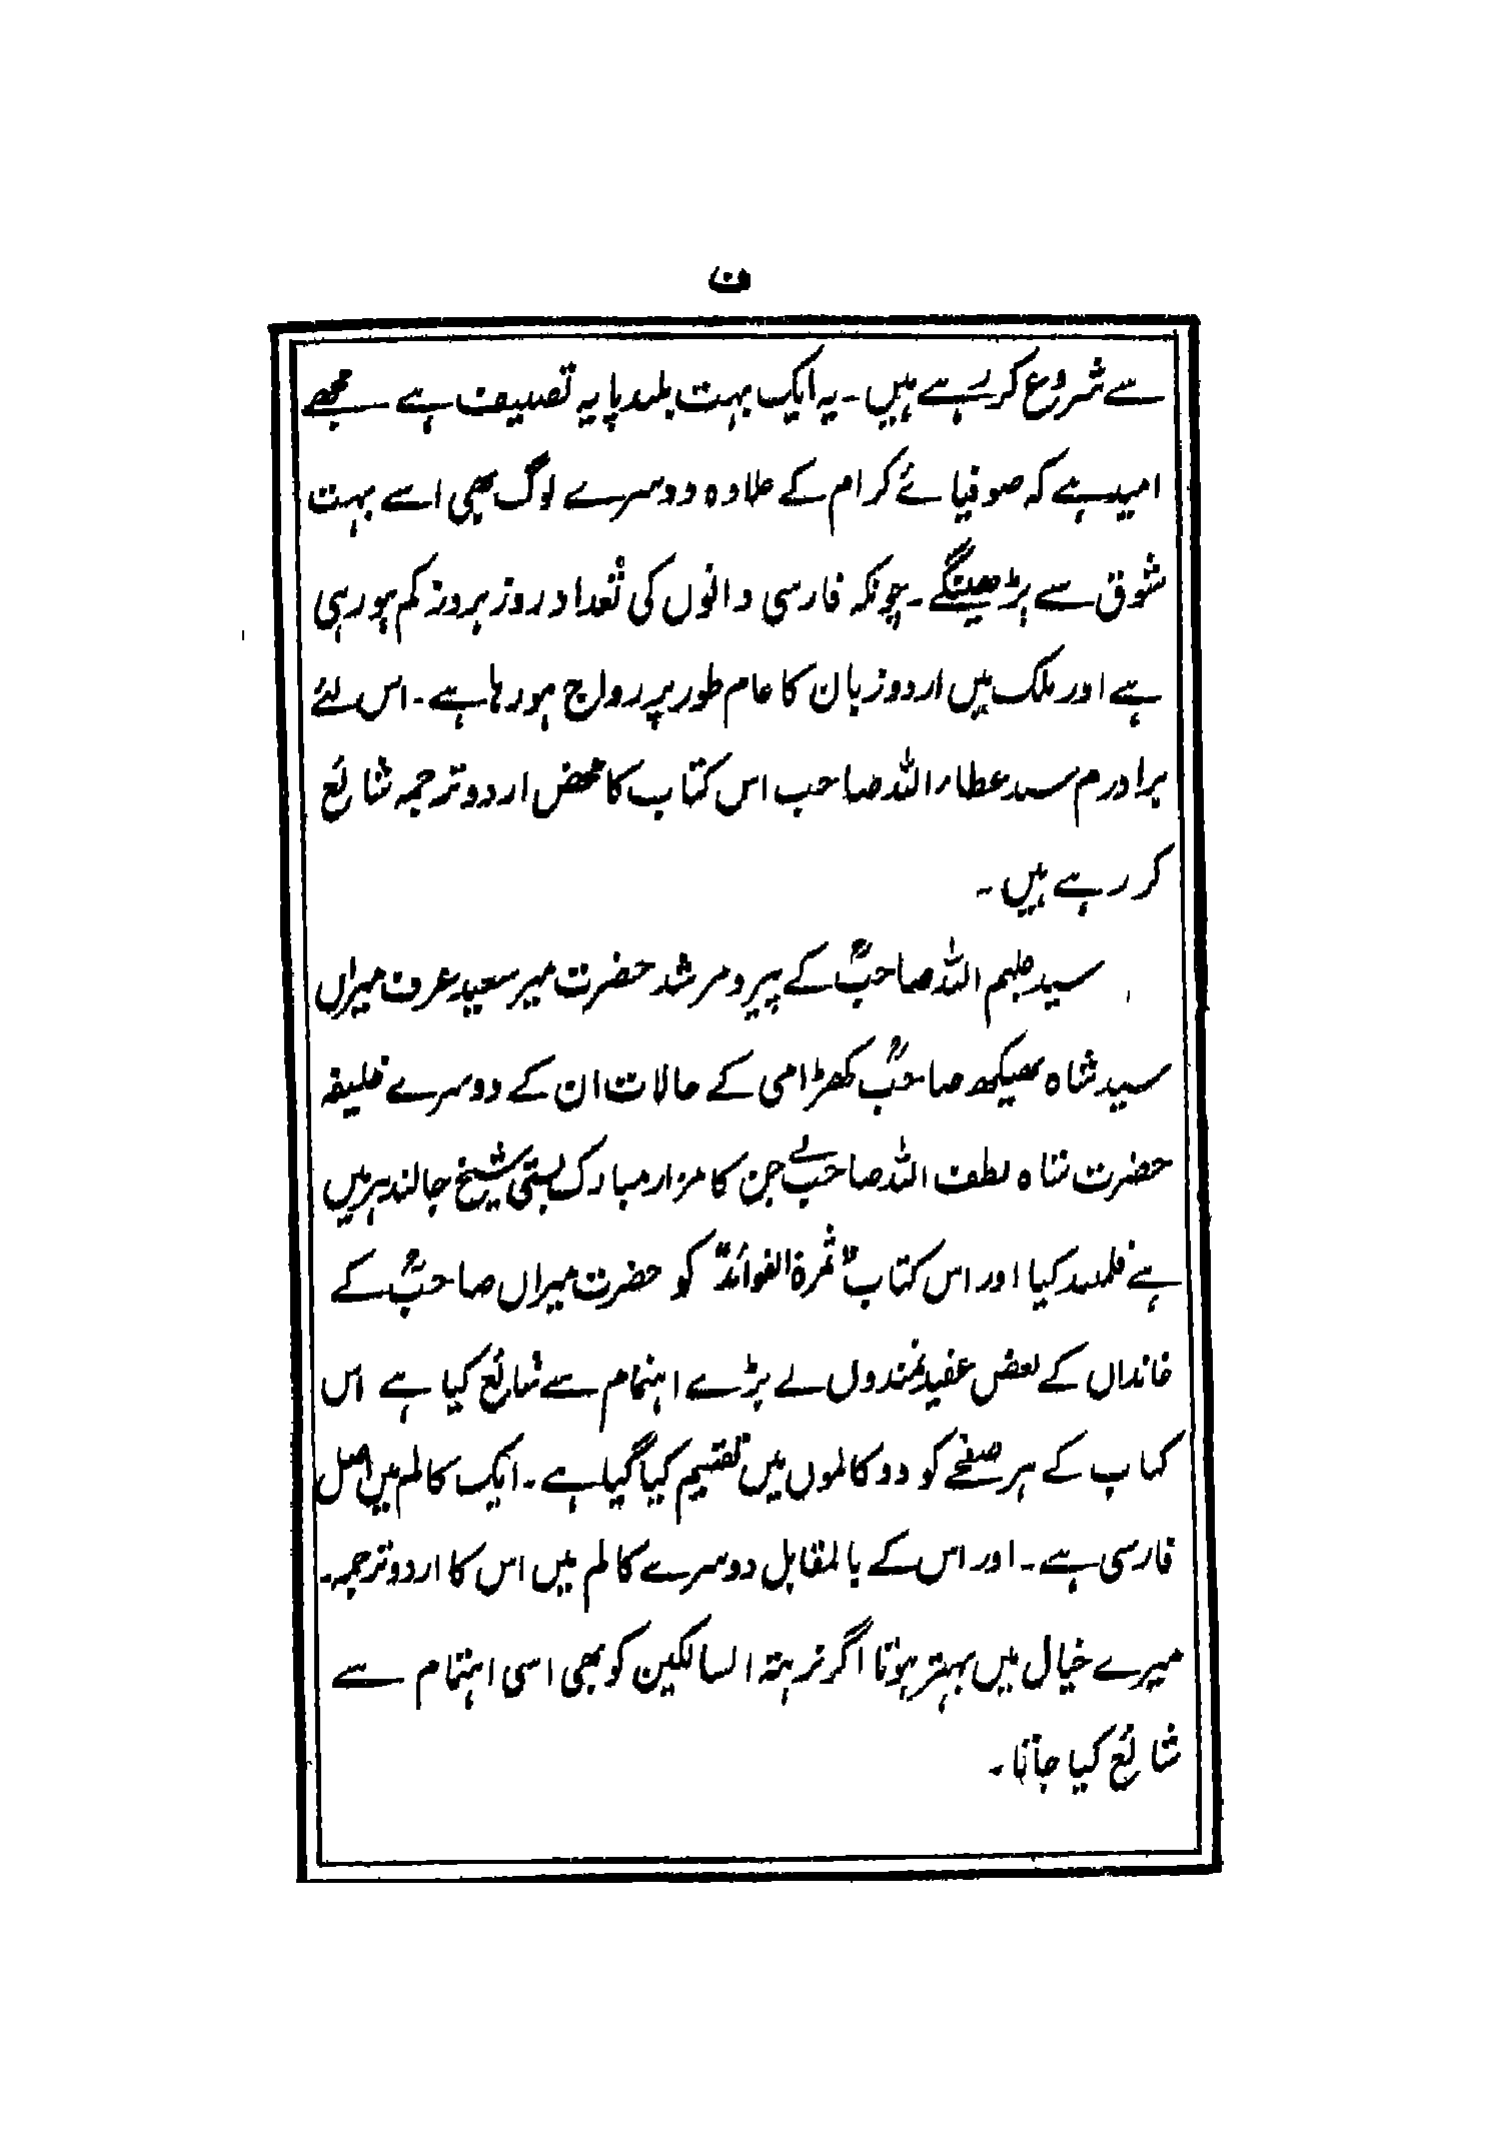 ن
سے شروع کر رہے ہیں ۔ یہ ایک بہت بلند پایہ تصنیف ہے مجھے
امید ہے کہ صوفیائے کرام کے علاوہ دوسرے لوگ بھی اسے بہت
شوق سے پڑھینگے ۔ چونکہ فارسی دانوں کی تعداد روز بروز کم ہو رہی
ہے اور ملک میں اردو زبان کا عام طور پر رواج ہو رہا ہے ۔ اس لئے
برادرم سید عطاء اللہ صاحب اس کتاب کا محض اردو ترجمہ شائع
کر رہے ہیں ۔
سید علیم اللہ صاحبؒ کے پیر و مرشد حضرت میر سعید عرف میراں
سید شاہ بھیکھ صاحبؒ کھڑامی کے حالات ان کے دوسرے خلیفہ
حضرت شاہ لطف اللہ صاحب نے جن کا مزار مبارک بستی شیخ جالندہر میں
ہے قلمبند کیا اور اس کتاب "ثمرۃ الفوائد" کو حضرت میراں صاحبؒ کے
خانداں کے بعض عقیدتمندوں نے بڑے اہتمام سے شائع کیا ہے اس
کتاب کے ہر صفحے کو دو کالموں میں تقسیم کیا گیا ہے ۔ ایک کالم میں اصل
فارسی ہے ۔ اور اس کے بالمقابل دوسرے کالم میں اس کا اردو ترجمہ ۔
میرے خیال میں بہتر ہوتا اگر نزہتہ السالکین کو بھی اسی اہتمام سے
شائع کیا جاتا ۔